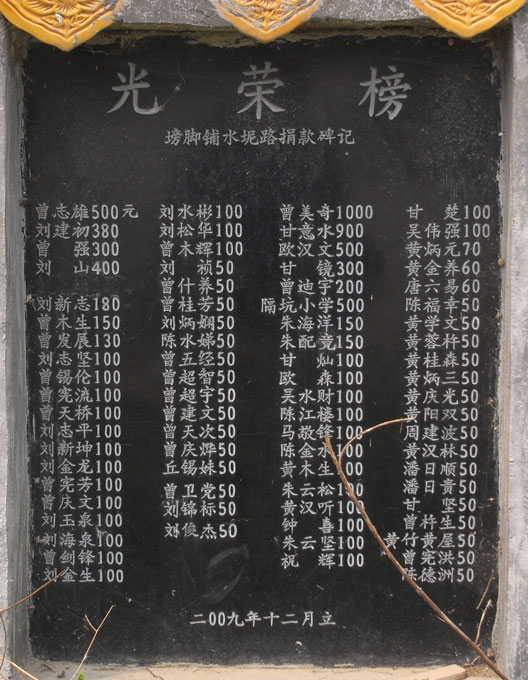 光荣榜
塝脚铺水坭路捐款碑记
曾志雄500元
刘建初380
曾强300
刘山400
刘新志180
曾木生150
曾发展130
刘志坚100
曾锡伦100
曾宪流100
曾天桥100
刘志平100
刘新坤100
刘金龙100
曾宪芳100
曾庆文100
刘玉泉100
刘海泉100
曾剑锋100
刘金生100
刘水彬100
刘松华100
曾木辉100
刘祯50
曾什养50
曾桂芳50
刘炳娴50
陈水娣50
曾五经50
曾超智50
曾超宇50
曾建文50
曾天次50
曾庆烨50
丘锡妹50
曾卫党50
曾锦标50
刘俊杰50
曾美奇1000
甘意水900
欧汉文500
甘镜300
曾迪宇200
隔坑小学500
朱海洋150
朱配竟150
甘灿100
欧森100
吴水财100
陈江楼100
马敬锋100
陈金水100
黄木生100
朱云松100
黄汉听100
钟喜100
朱云坚100
祝辉100
甘楚100
吴伟强100
黄炳元70
黄金养60
唐六易60
陈福幸50
黄学文50
黄蓉杵50
黄桂森50
黄炳三50
黄庆光50
黄阳双50
周建波50
黄汉林50
潘日顺50
潘日贵50
甘坚50
曾杵生50
黄竹屋50
曾宪洪50
陈德洲50
二00九年十二月立